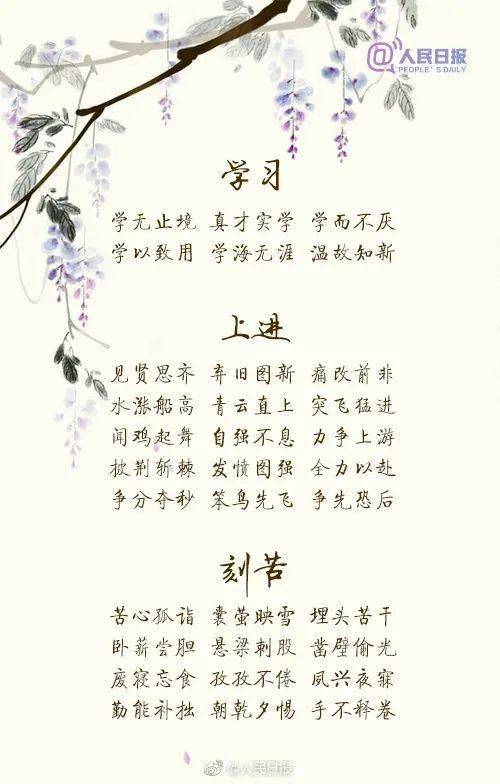 @人民日报
PEOPLE'S DAILY
学习
学无止境 真才实学 学而不厌
学以致用 学海无涯 温故知新
上进
见贤思齐 弃旧图新 痛改前非
水涨船高 青云直上 突飞猛进
闻鸡起舞 自强不息 力争上游
披荆斩棘 发愤图强 全力以赴
争分夺秒 笨鸟先飞 争先恐后
刻苦
苦心孤诣 囊萤映雪 埋头苦干
卧薪尝胆 悬梁刺股 凿壁偷光
废寝忘食 孜孜不倦 夙兴夜寐
勤能补拙 朝乾夕惕 手不释卷
@人民日报